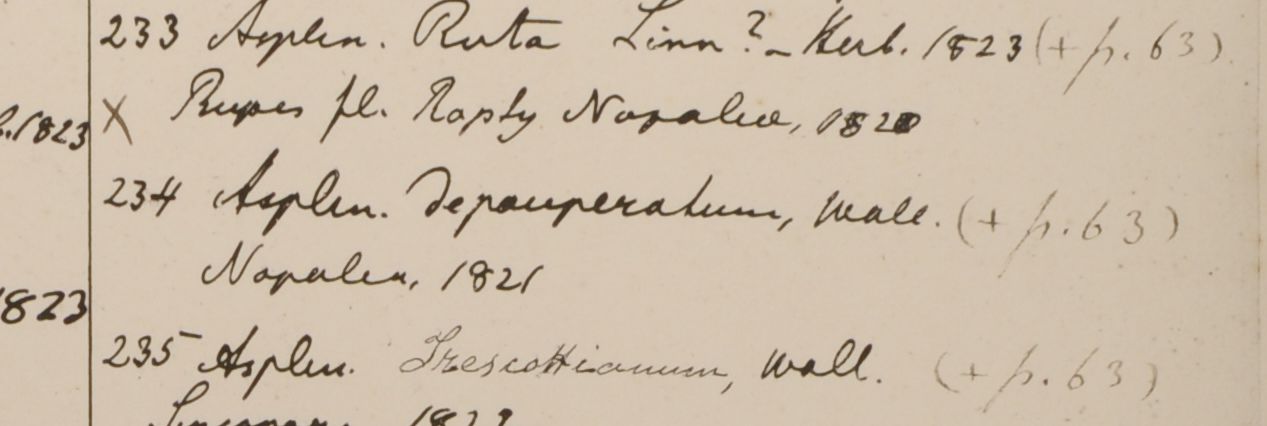 233 Asplen. Ruta Linn? - Herb. 1823 (+ p. 63).
b. 1823 X Rupes fl. Rapty Napalia, 1820
234 Asplen. depauperatum, Wall. (+ p. 63)
Napalia, 1821
1823
235 Asplen. Trescottianum, Wall. (+ p. 63)